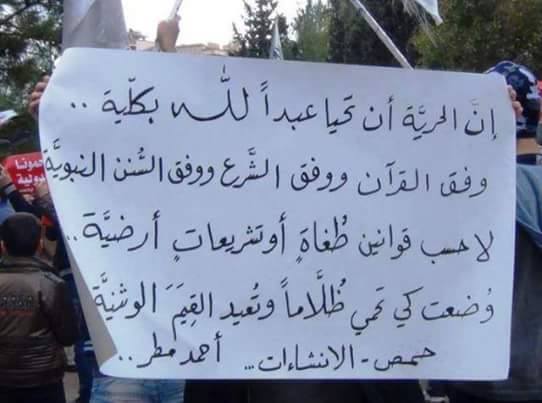 إنَّ الحريَّة أن تحيا عبداً لله بكلّية ..
وفق القرآن ووفق الشَّرع ووفق السُّنن النبويَّة
لا حسب قوانين طُغاةٍ أو تشريعاتٍ أرضيَّة ..
وُضعت كي تحمي ظُلَّاماً وتُعيد القِيَمَ الوثنيَّة
حمص - الانشاءات ... أحمد مطر ..